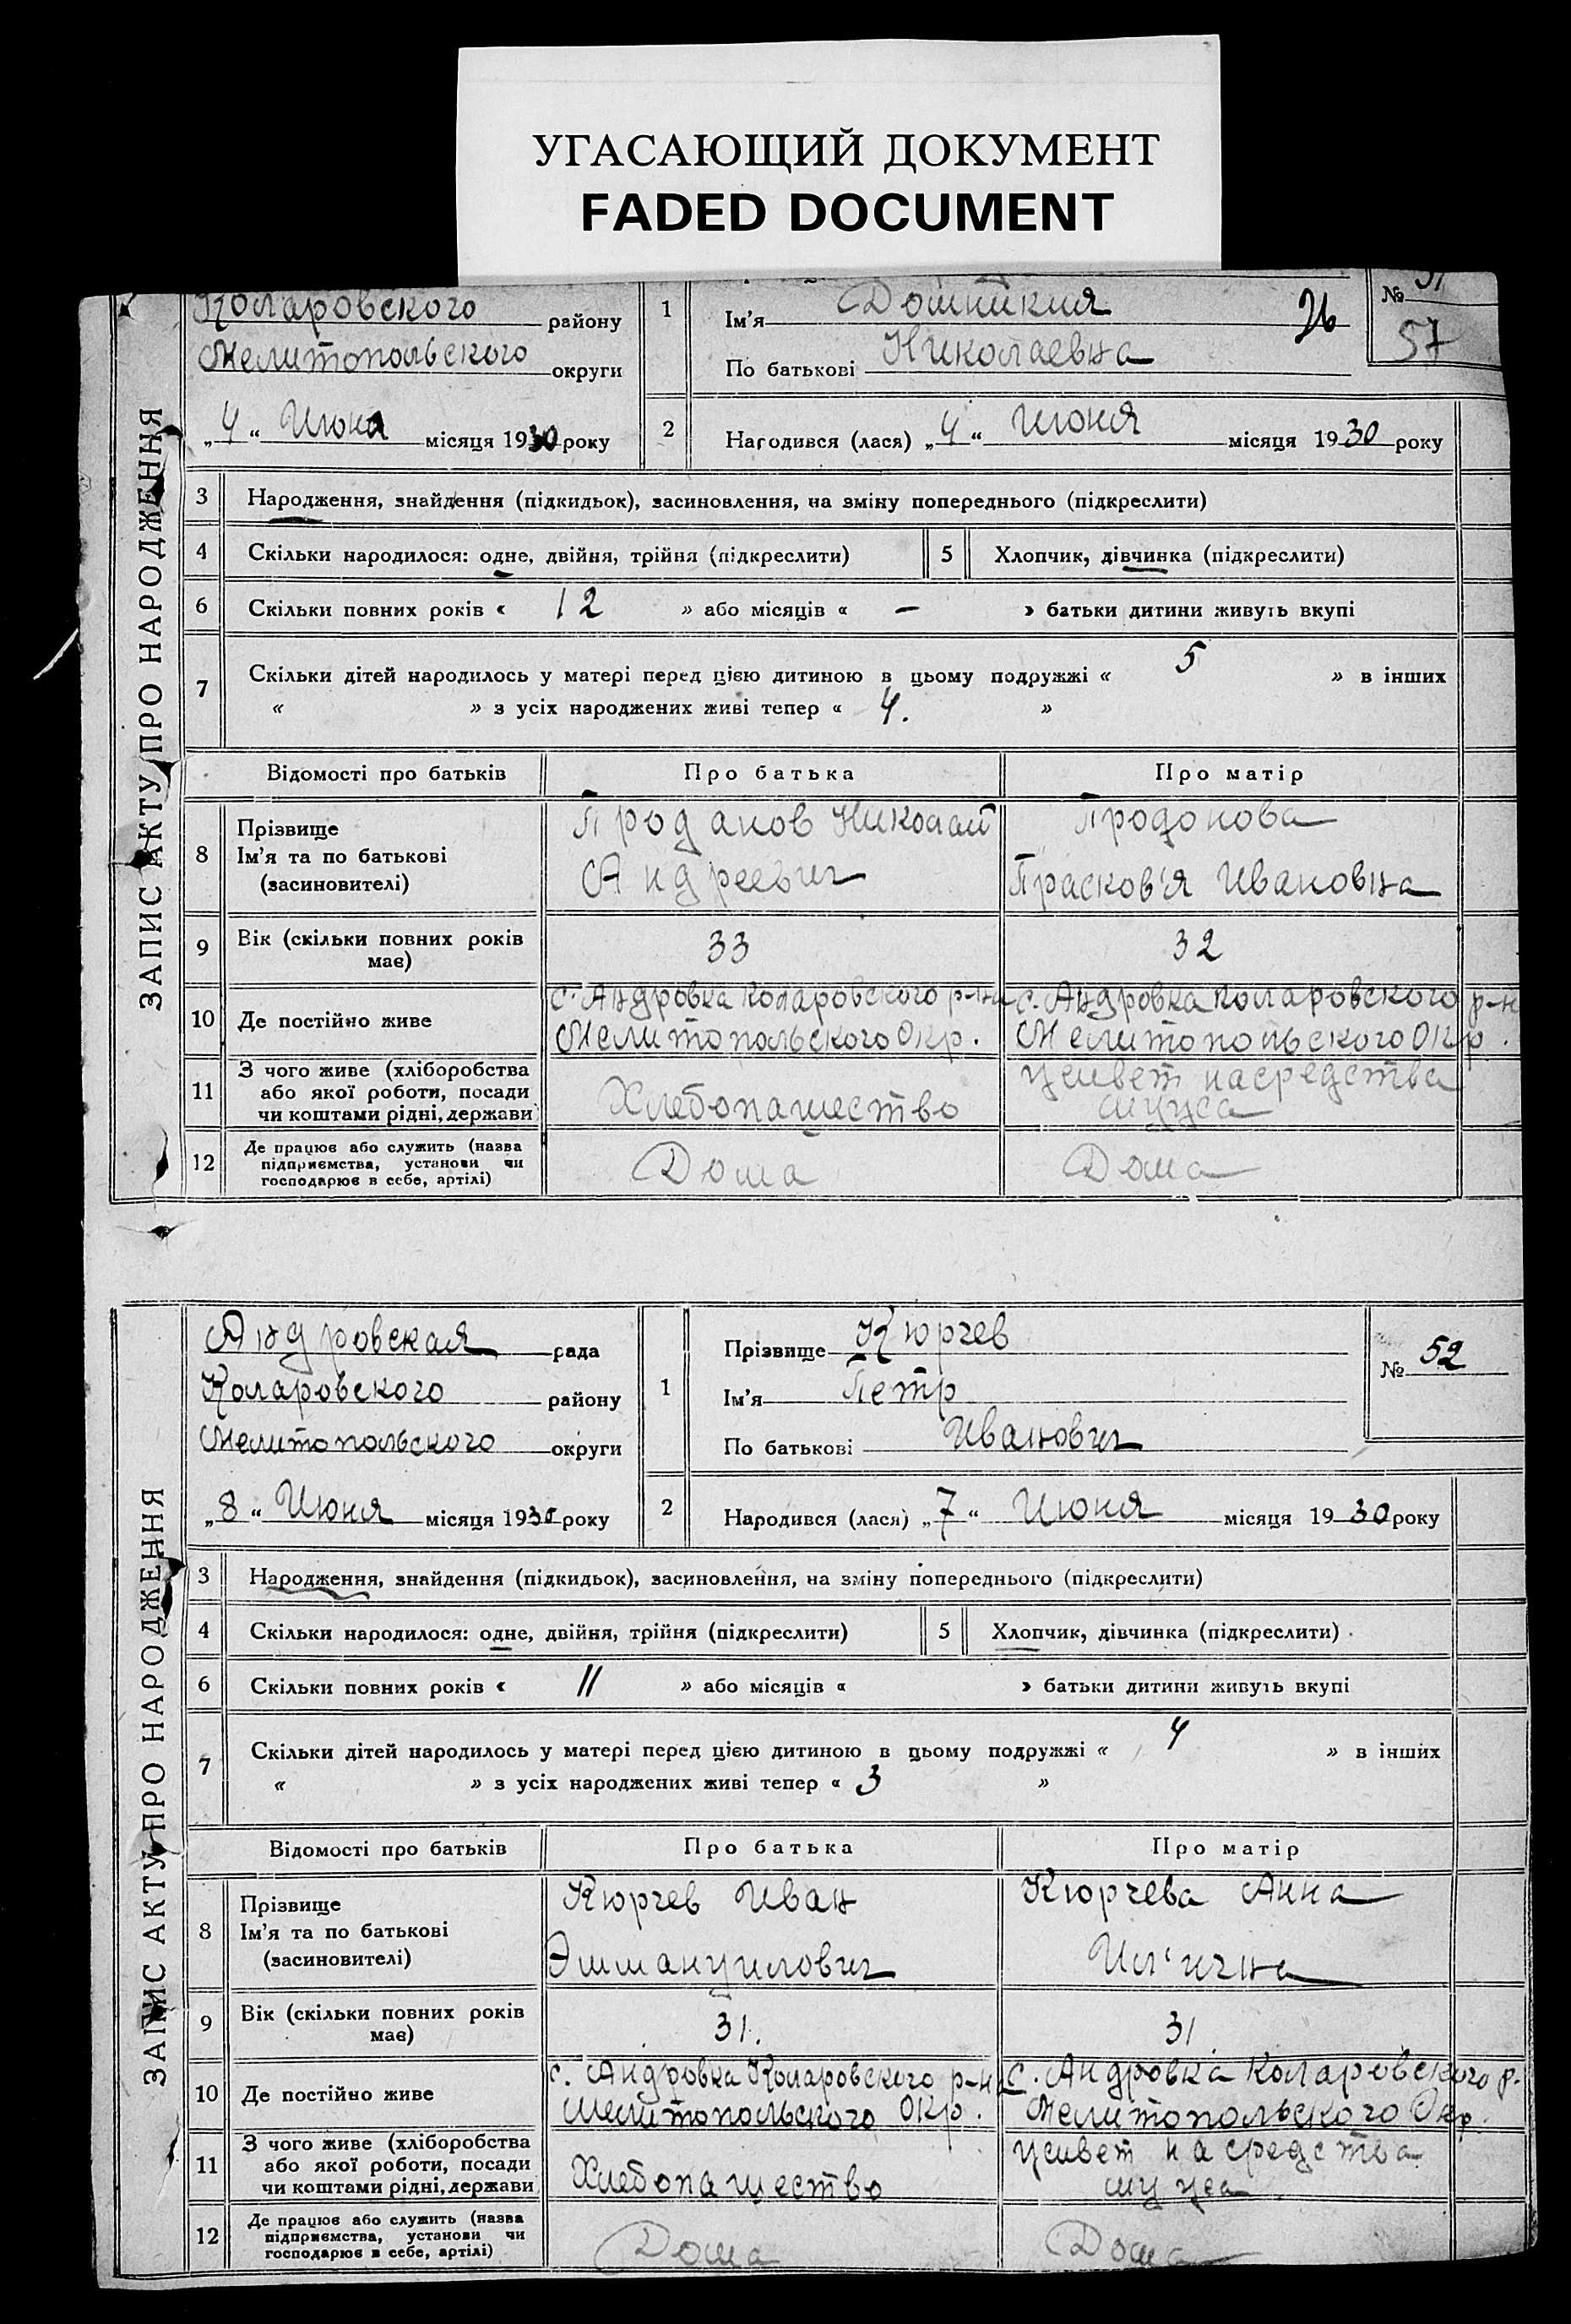 УГАСАЮЩИЙ ДОКУМЕНТ
FADED DOCUMENT
ЗАПИС АКТУ ПРО НАРОДЖЕННЯ
Коларовского району
Мелитопольского округи
„4“ Июня місяця 1930 року
1
Ім'я Домникия
По батькові Николаевна
26
№ 51
57
2
Народився (лася) „4“ июня місяця 1930 року
3 Народження, знайдення (підкидьок), засиновлення, на зміну попереднього (підкреслити)
4 Скільки народилося: одне, двійня, трійня (підкреслити) 5 Хлопчик, дівчинка (підкреслити)
6 Скільки повних років « 12 » або місяців « – » батьки дитини живуть вкупі
7 Скільки дітей народилось у матері перед цією дитиною в цьому подружжі « 5 » в інших
« » з усіх народжених живі тепер « 4. »
Відомості про батьків Про батька Про матір
8 Прізвище
Ім'я та по батькові
(засиновителі)
Проданов Николай
Андреевич
Продонова
Прасков'я Ивановна
9 Вік (скільки повних років
має)
33
32
10 Де постійно живе
с. Андровка Коларовского р-на
Мелитопольского Окр.
с. Андровка Коларовского р-н
Мелитопольского Окр.
11 З чого живе (хліборобства
або якої роботи, посади
чи коштами рідні, держави
Хлебопашество
живет на средства
мужа
12 Де працює або служить (назва
підприємства, установи чи
господарює в себе, артілі)
Дома
Дома
ЗАПИС АКТУ ПРО НАРОДЖЕННЯ
Андровская рада
Коларовского району
Мелитопольского округи
„8“ Июня місяця 1930 року
1
Прізвище Кюрчев
Ім'я Петр
По батькові Иванович
№ 52
2
Народився (лася) „7“ Июня місяця 1930 року
3 Народження, знайдення (підкидьок), засиновлення, на зміну попереднього (підкреслити)
4 Скільки народилося: одне, двійня, трійня (підкреслити) 5 Хлопчик, дівчинка (підкреслити)
6 Скільки повних років « 11 » або місяців « » батьки дитини живуть вкупі
7 Скільки дітей народилось у матері перед цією дитиною в цьому подружжі « 4 » в інших
« » з усіх народжених живі тепер « 3 »
Відомості про батьків Про батька Про матір
8 Прізвище
Ім'я та по батькові
(засиновителі)
Кюрчев Иван
Эммануилович
Кюрчева Анна
Ил'ична
9 Вік (скільки повних років
має)
31.
31
10 Де постійно живе
с. Андровка Коларовского р-н
Мелитопольского Окр.
с. Андровка Коларовского р.
Мелитопольского Окр.
11 З чого живе (хліборобства
або якої роботи, посади
чи коштами рідні, держави
Хлебопашество
живет на средства
мужа
12 Де працює або служить (назва
підприємства, установи чи
господарює в себе, артілі)
Дома
Дома